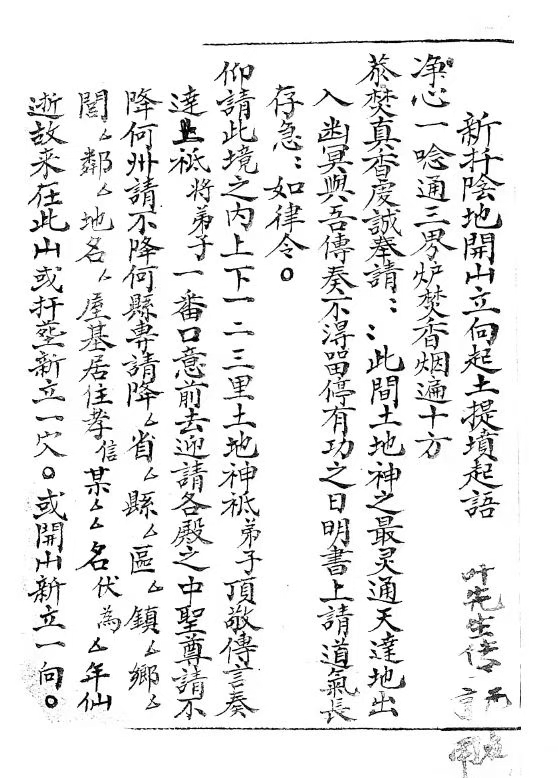 新扦陰地開山立向起土提墳起語
叶先生传
淨心一唸通三界炉焚香烟遍十方
焚真香虔誠奉請：：此間土地神之最灵通天達地出
入幽冥與吾傳奏不淂畱停有功之日明書上請道氣長
存急：如律令。
仰請此境之内上下一二三里土地神祇弟子頂敬傳言奏
達上祇将弟子一番口意前去迎請各殿之中聖尊請不
降何州請不降何縣專請降厶省厶縣厶區厶鎮厶鄉厶
閭厶鄰厶地名厶屋基居住孝信某厶厶名伏為厶年仙
逝故来在此山或扦塟新立一穴。或開山新立一向。